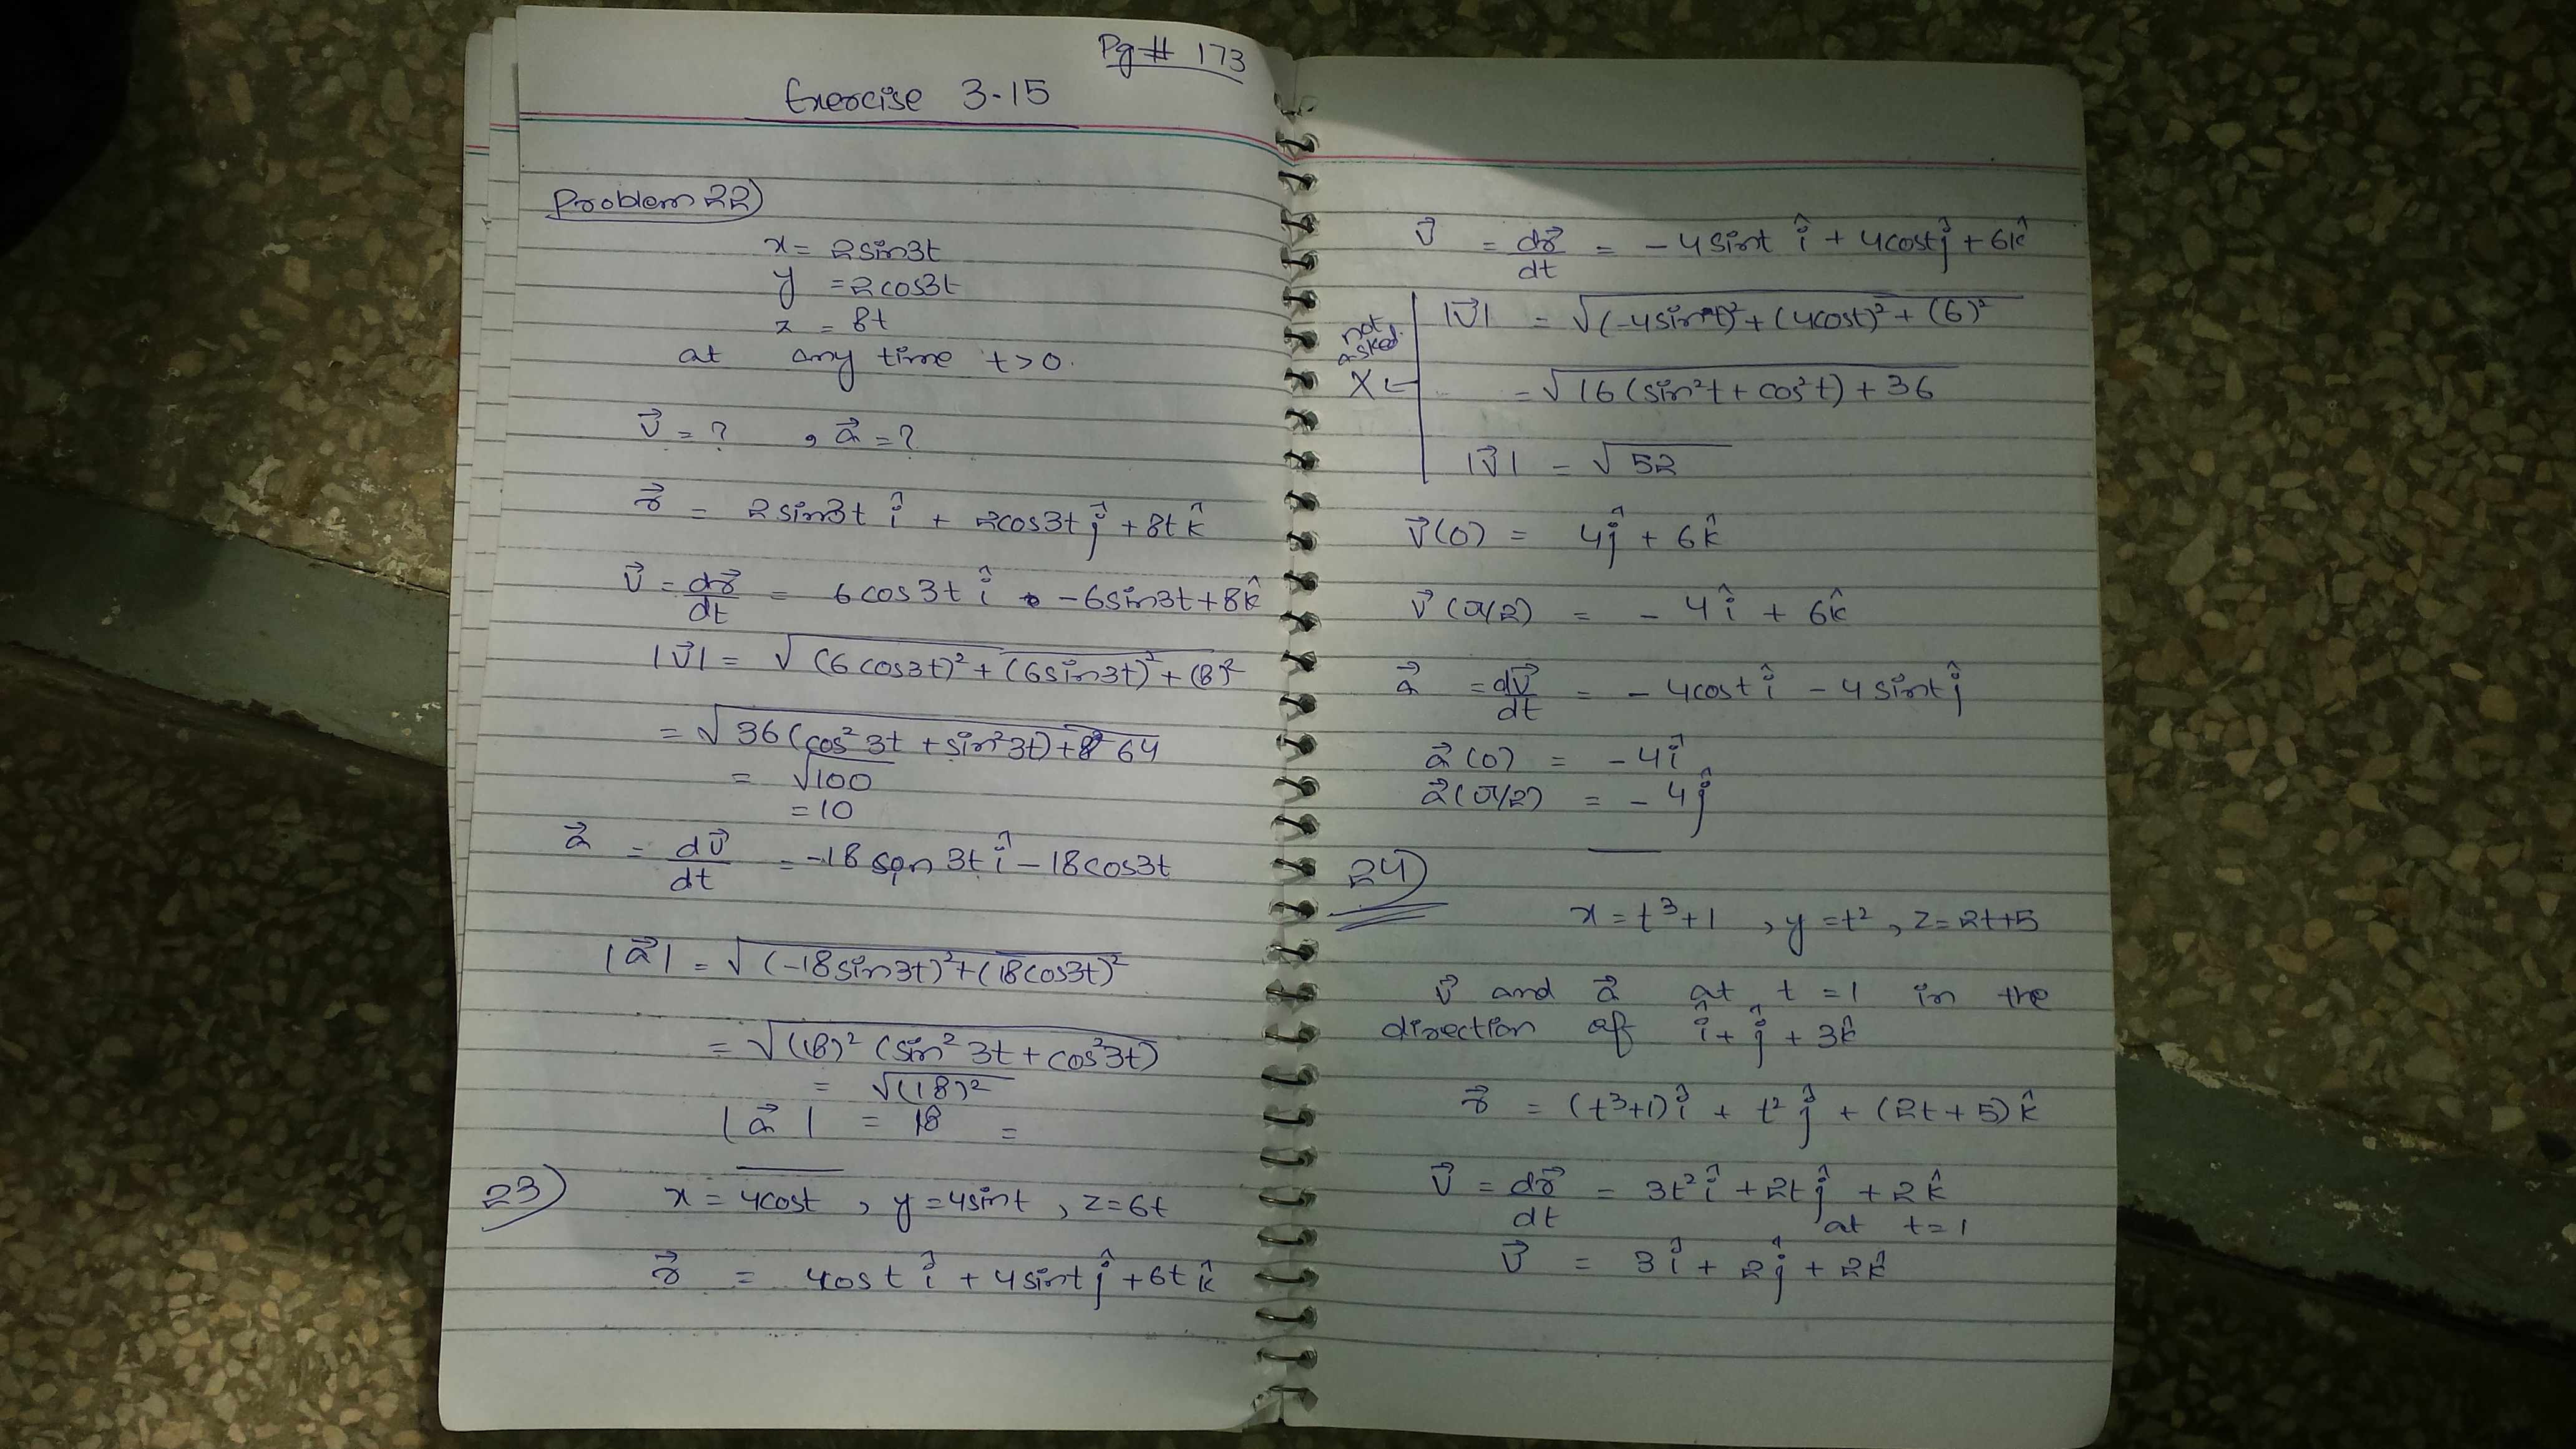 Pg# 173
Exercise 3.15
Problem 22)
x = 2sin3t
y = 2cos3t
z = 8t
at any time t>0.
v⃗ = ? , a⃗ = ?
r⃗ = 2sin3t î + 2cos3t ĵ + 8t k̂
v⃗ = dr⃗/dt = 6cos3t î - 6sin3t + 8k̂
|v⃗| = √(6cos3t)² + (6sin3t)² + (8)²
= √36(cos²3t + sin²3t) + 64
= √100
= 10
a⃗ = dv⃗/dt = -18 sin 3t î - 18cos3t
|a⃗| = √(-18sin3t)² + (18cos3t)²
= √(18)² (sin² 3t + cos²3t)
= √(18)²
|a⃗| = 18 =
23) x = 4cost , y = 4sint , z = 6t
r⃗ = 4cos t î + 4sint ĵ + 6t k̂
v⃗ = dr⃗/dt = - 4sint î + 4cost ĵ + 6k̂
|v⃗| = √(-4sint)² + (4cost)² + (6)²
not asked.
X = √16(sin²t + cos²t) + 36
|v⃗| = √52
v⃗(0) = 4ĵ + 6k̂
v⃗(π/2) = - 4î + 6k̂
a⃗ = dv⃗/dt = - 4cost î - 4sint ĵ
a⃗(0) = - 4î
a⃗(π/2) = - 4ĵ
24)
x = t³+1 , y = t² , z = 2t+5
v⃗ and a⃗ at t = 1 in the
direction of î + ĵ + 3k̂
r⃗ = (t³+1)î + t² ĵ + (2t+5)k̂
v⃗ = dr⃗/dt = 3t² î + 2t ĵ + 2k̂
at t=1
v⃗ = 3î + 2ĵ + 2k̂